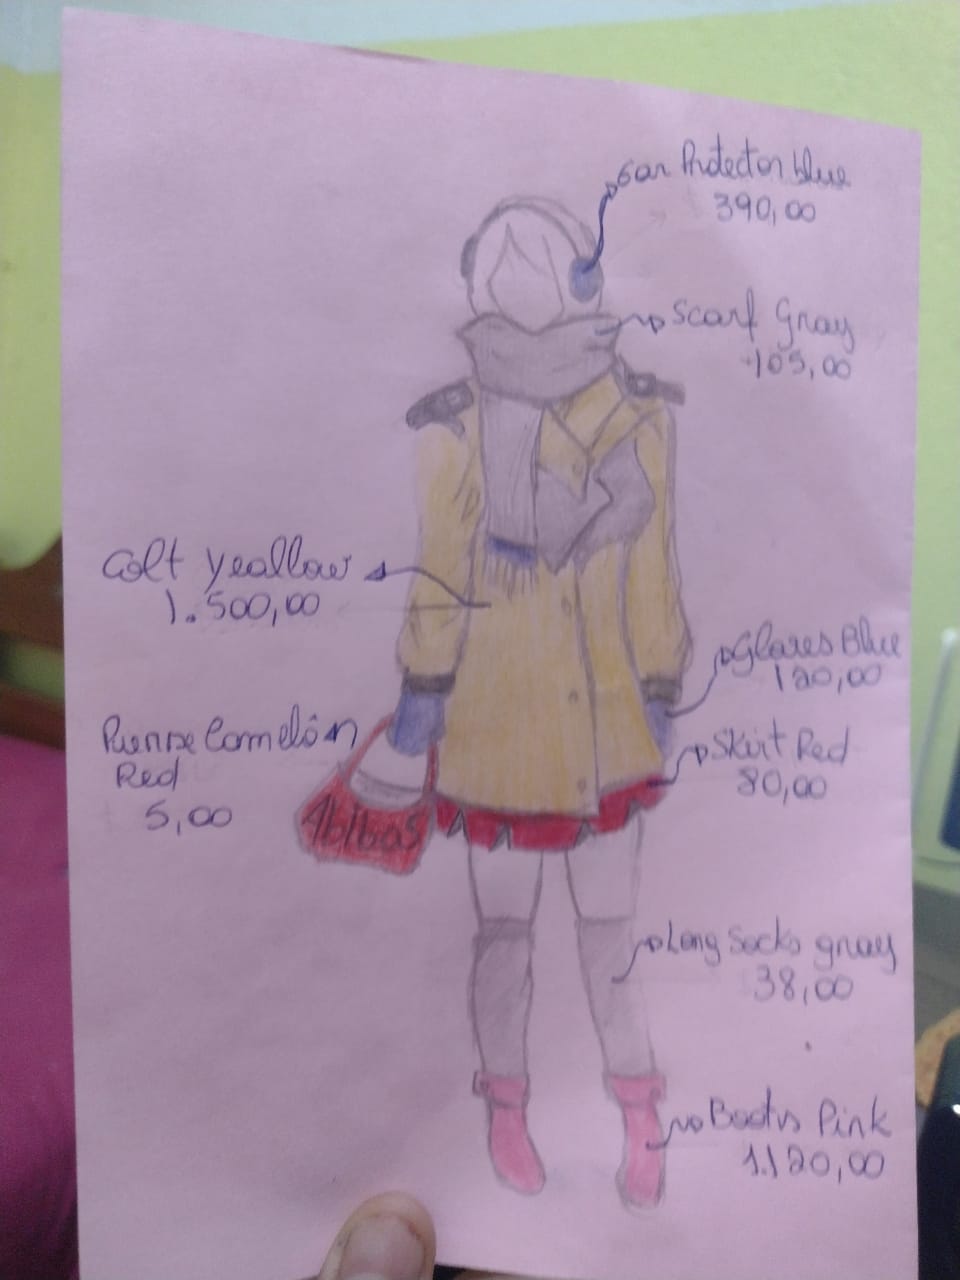 Ear Protector blue
390,00
Scarf Gray
105,00
Colt Yeallow
1.500,00
Glares Blue
120,00
Skirt Red
80,00
Camelô
Red
5,00
Abibas
Long Socks gray
38,00
Bootss Pink
1.120,00